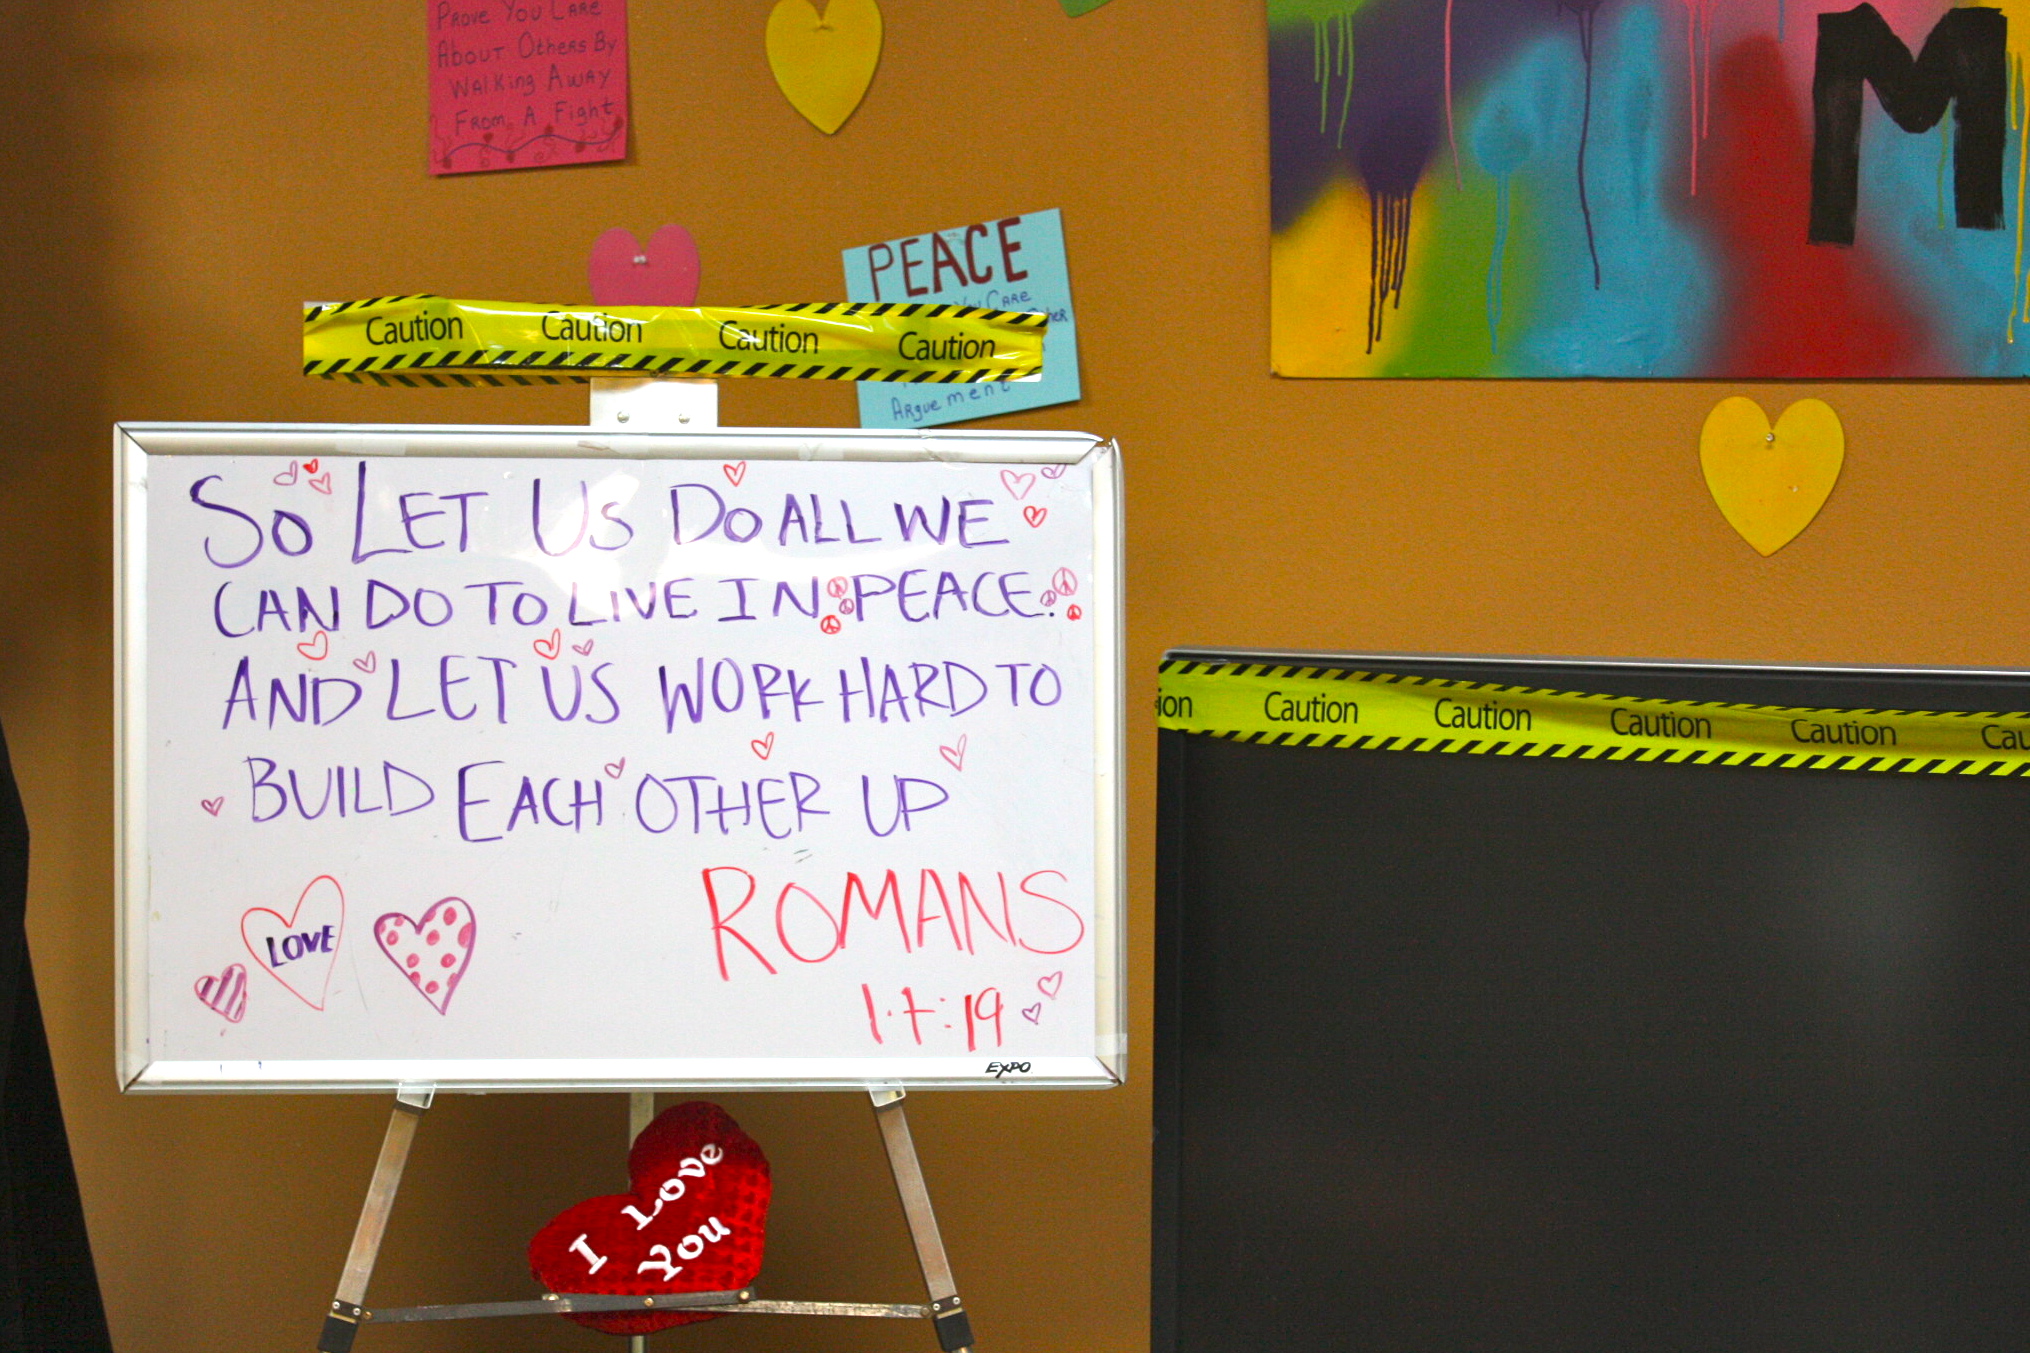 PROVE YOU CARE
ABOUT OTHERS BY
WALKING AWAY
FROM A Fight
M
PEACE
You CARE
Arguement
Caution Caution Caution Caution
So LET US Do ALL WE
CAN DO TO LIVE IN PEACE.
AND LET US WORK HARD TO
BUILD EACH OTHER UP
LOVE
ROMANS
14:19
EXPO
ion Caution Caution Caution Caution Cau
I Love
You